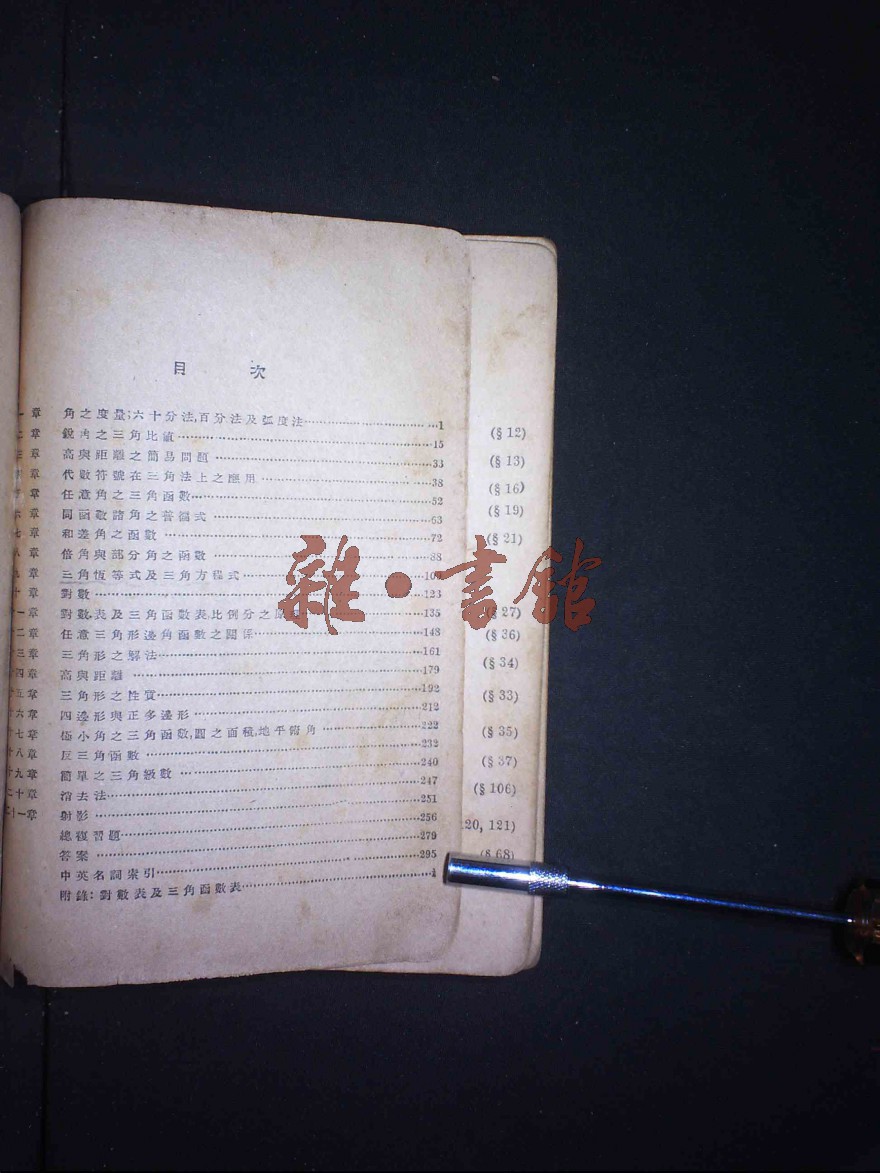 目 次
一章 角之度量;六十分法,百分法及弧度法 1
二章 銳角之三角比值 15
三章 高與距離之簡易問題 33
四章 代數符號在三角法上之應用 38
章 任意角之三角函數 52
六章 同函數諸角之普徧式 63
七章 和差角之函數 72
八章 倍角與部分角之函數 88
九章 三角恆等式及三角方程式 109
十章 對數 123
十一章 對數表及三角函數表,比例分之 135
十二章 任意三角形邊角函數之關係 148
十三章 三角形之解法 161
十四章 高與距離 179
十五章 三角形之性質 192
十六章 四邊形與正多邊形 212
十七章 極小角之三角函數,圓之面積,地平俯角 222
十八章 反三角函數 232
十九章 簡單之三角級數 240
二十章 消去法 247
二十一章 射影 251
總複習題 256
答案 279
中英名詞索引 295
附錄:對數表及三角函數表 1
(§ 12)
(§ 13)
(§ 16)
(§ 19)
(§ 21)
(§ 27)
(§ 36)
(§ 34)
(§ 33)
(§ 35)
(§ 37)
(§ 106)
20, 121)
(§ 68)
雜·書館